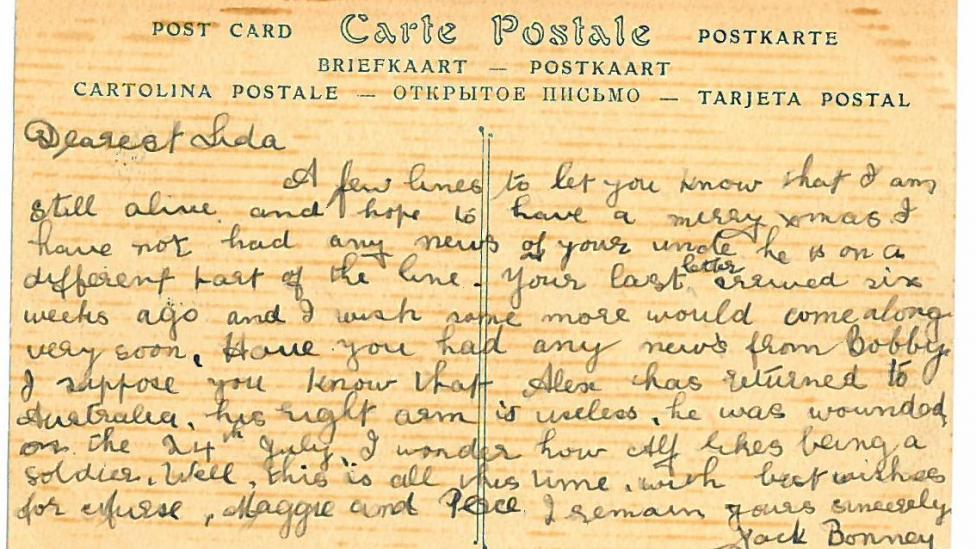 POST CARD Carte Postale POSTKARTE
BRIEFKAART — POSTKAART
CARTOLINA POSTALE — ОТКРЫТОЕ ПИСЬМО — TARJETA POSTAL
Dearest Lida
A few lines to let you know that I am
still alive and hope to have a merry xmas I
have not had any news of your uncle he is on a
different part of the line. Your last letter arrived six
weeks ago and I wish some more would come along
very soon, Have you had any news from Bobby.
I suppose you know that Alex has returned to
Australia, his right arm is useless, he was wounded
on the 24th July, I wonder how Alf likes being a
soldier. Well, this is all this time, with best wishes
for Nurse, Maggie and Perce I remain yours sincerely
Jack Bonney